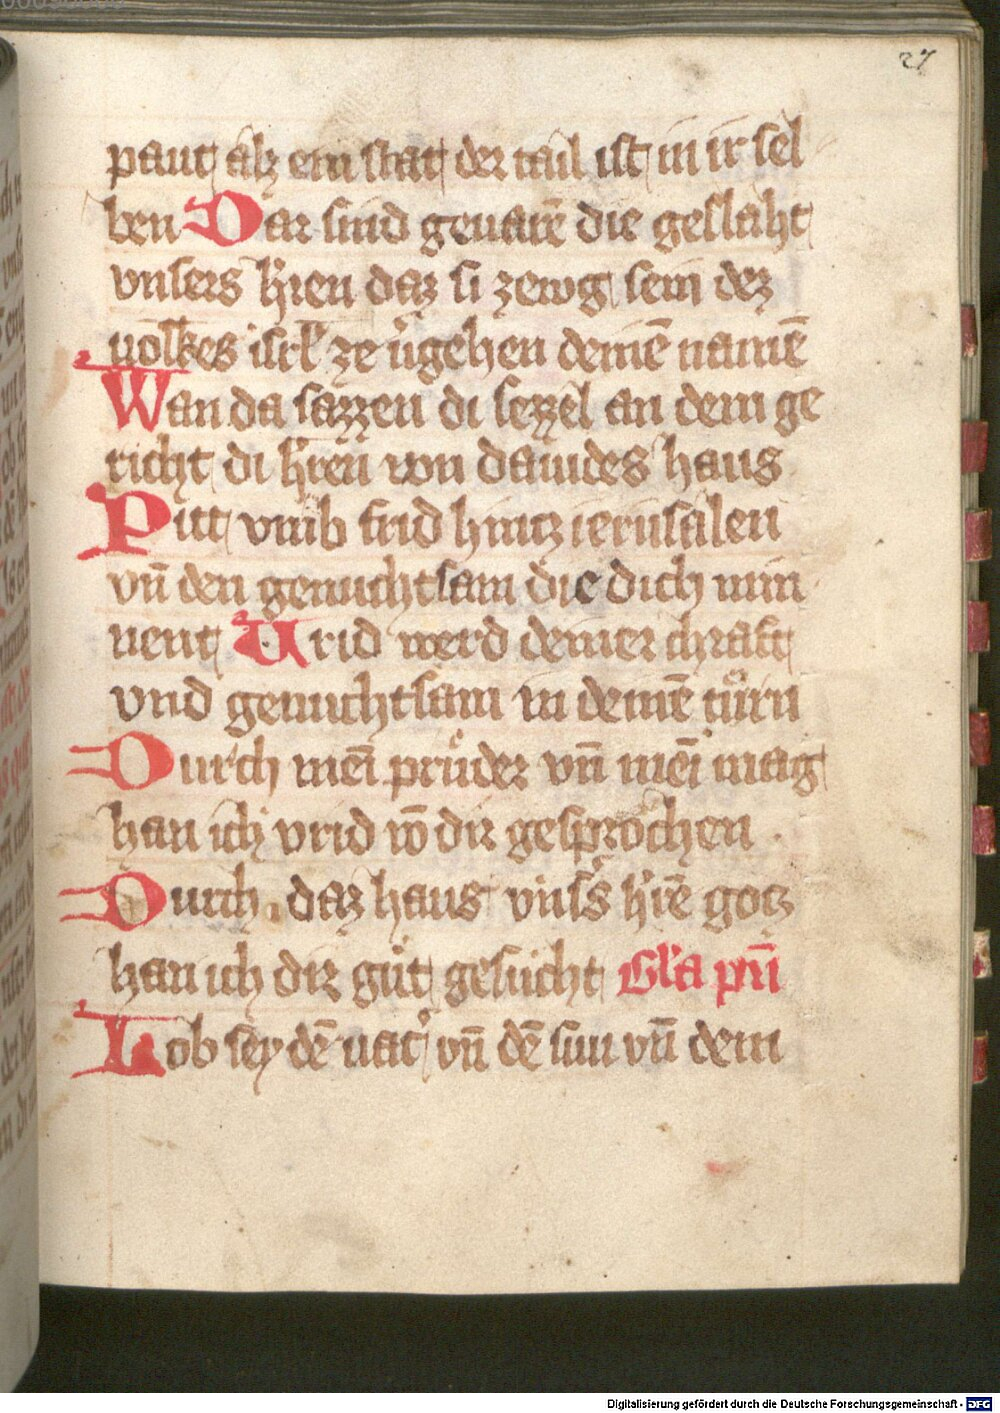 27
paut alz ein stat der tail ist in ir sel
ben Dar sind geuarē die geslaht
vnsers h̄ren daz si zewg sein dez
uolkes isrl̄ ze v̄gehen deinē namē
Wan da sazzen di sezzel an dem ge
richt di h̄ren von dauides haus
Pitt vmb frid hintz ierusalen
vn̄ den genuchtsam die dich min
nent Urid werd deiner chraft
vnd genuchtsam in deinē tůrn
Durch mei̅ průder vn̄ mei̅ mag
han ich vrid vō dir gesprochen
Durch daz haus vnsˢ h̄rē gotz
han ich dir gůt gesucht Gl̄a pr̄i
Lob sey dē uatˀ vn̄ dē sun vn̄ dem
Digitalisierung gefördert durch die Deutsche Forschungsgemeinschaft - DFG